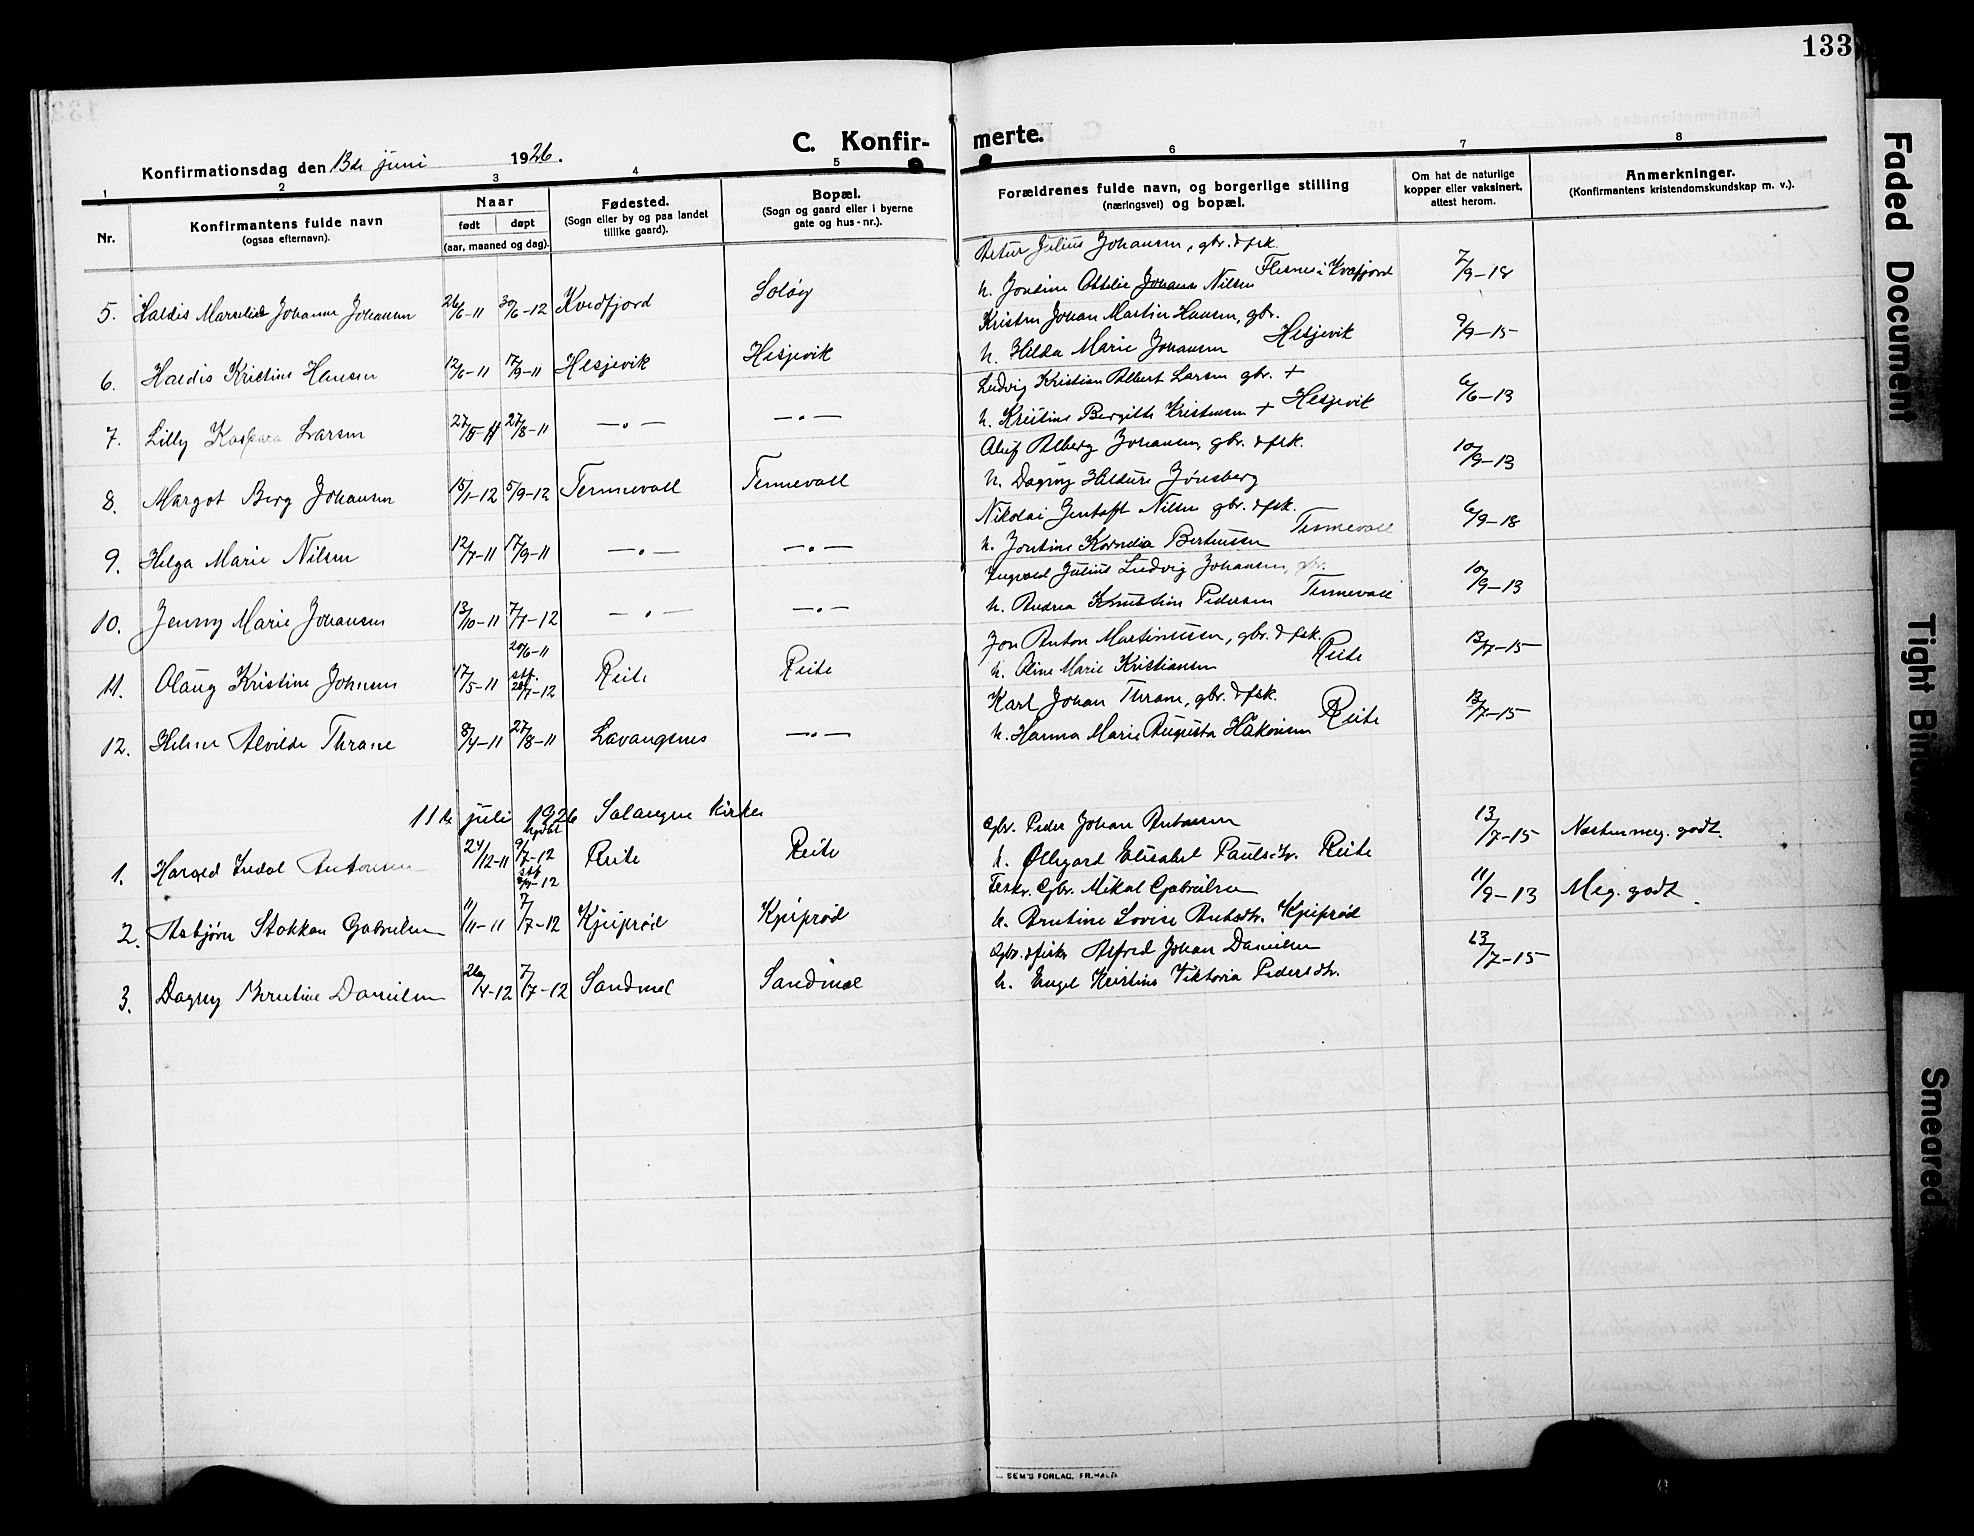 133
C. Konfirmerte.
Konfirmationsdag den 13de juni 1926.
1 2 3 4 5 6 7 8
Nr.
Konfirmantens fulde navn
(ogsaa efternavn).
Naar
født døpt
(aar, maaned og dag).
Fødested.
(Sogn eller by og paa landet
tillike gaard).
Bopæl.
(Sogn og gaard eller i byerne
gate og hus-nr.).
Forældrenes fulde navn, og borgerlige stilling
(næringsvei) og bopæl.
Om hat de naturlige
kopper eller vaksinert,
attest herom.
Anmerkninger.
(Konfirmantens kristendomskundskap m. v.).
Artur Julius Johansen, gbr. & fsk.
5. Haldis Marselie Johanne Johansen 26/6-11 30/6-12 Kvedfjord Soløy h. Jontine Ottelie Nilsen Flesnes i Kvæfjord 7/9-18
Kristen Johan Martin Hansen, gbr.
6. Haldis Kristine Hansen 12/6-11 17/9-11 Hesjevik Hesjevik h. Hilda Marie Johansen Hesjevik 9/9-15
Ludvig Kristian Albert Larsen gbr. +
7. Lilly Kaspara Larsen 27/5-11 27/8-11 —„— —„— h. Kristine Bergitte Kristensen + Hesjevik 6/6-13
Aluf Alberg Johansen, gbr. & fsk.
8. Margot Berg Johansen 15/1-12 5/9-12 Tennevoll Tennevoll h. Dagny Hildure Jønsberg 10/9-13
Nikolai Jentoft Nilsen gbr. & fsk.
9. Helga Marie Nilsen 12/7-11 17/9-11 —„— —„— h. Jontine Kornelia Bertensen Tennevoll 6/9-18
Ingvald Julius Ludvig Johansen, gbr.
10. Jenny Marie Johansen 13/10-11 7/1-12 —„— —„— h. Andrea Knutstine Pedersen Tennevoll 10/9-13
Jon Anton Martinussen, gbr. & fsk.
11. Olaug Kristine Johnsen 17/5-11 20/6-11 stf. 28/7-12 Reite Reite h. Oline Marie Kristiansen Reite 13/7-15
Karl Johan Thrane, gbr. & fsk.
12. Helene Alvilde Thrane 8/4-11 27/8-11 Lavangsnes —„— h. Hanna Marie Augusta Håkonsen Reite 13/7-15
11te juli 1926 Salangen kirke
Gbr. Peder Johan Antonsen
1. Harald Indal Antonsen 24/12-11 hjdbt 9/7-12 stf. Reite Reite h. Ollegard Elisabet Paulsdtr. Reite 13/7-15 Næsten meg. godt.
Fisker. Gbr. Mikal Gabrielsen
2. Asbjørn Stokkan Gabrielsen 11/11-11 7/7-12 Kjeiprød Kjeiprød h. Brutine Lovise Antsdtr. Kjeiprød 11/9-13 Meg. godt.
Gbr. & fisker Alfred Johan Danielsen
3. Dagny Berntine Danielsen 26/4-12 7/7-12 Sandmel Sandmæl h. Engel Kristine Viktoria Pedersdtr. 13/7-15
SEM'S FORLAG, FR.HALD
Faded Document
Tight Binding
Smeared